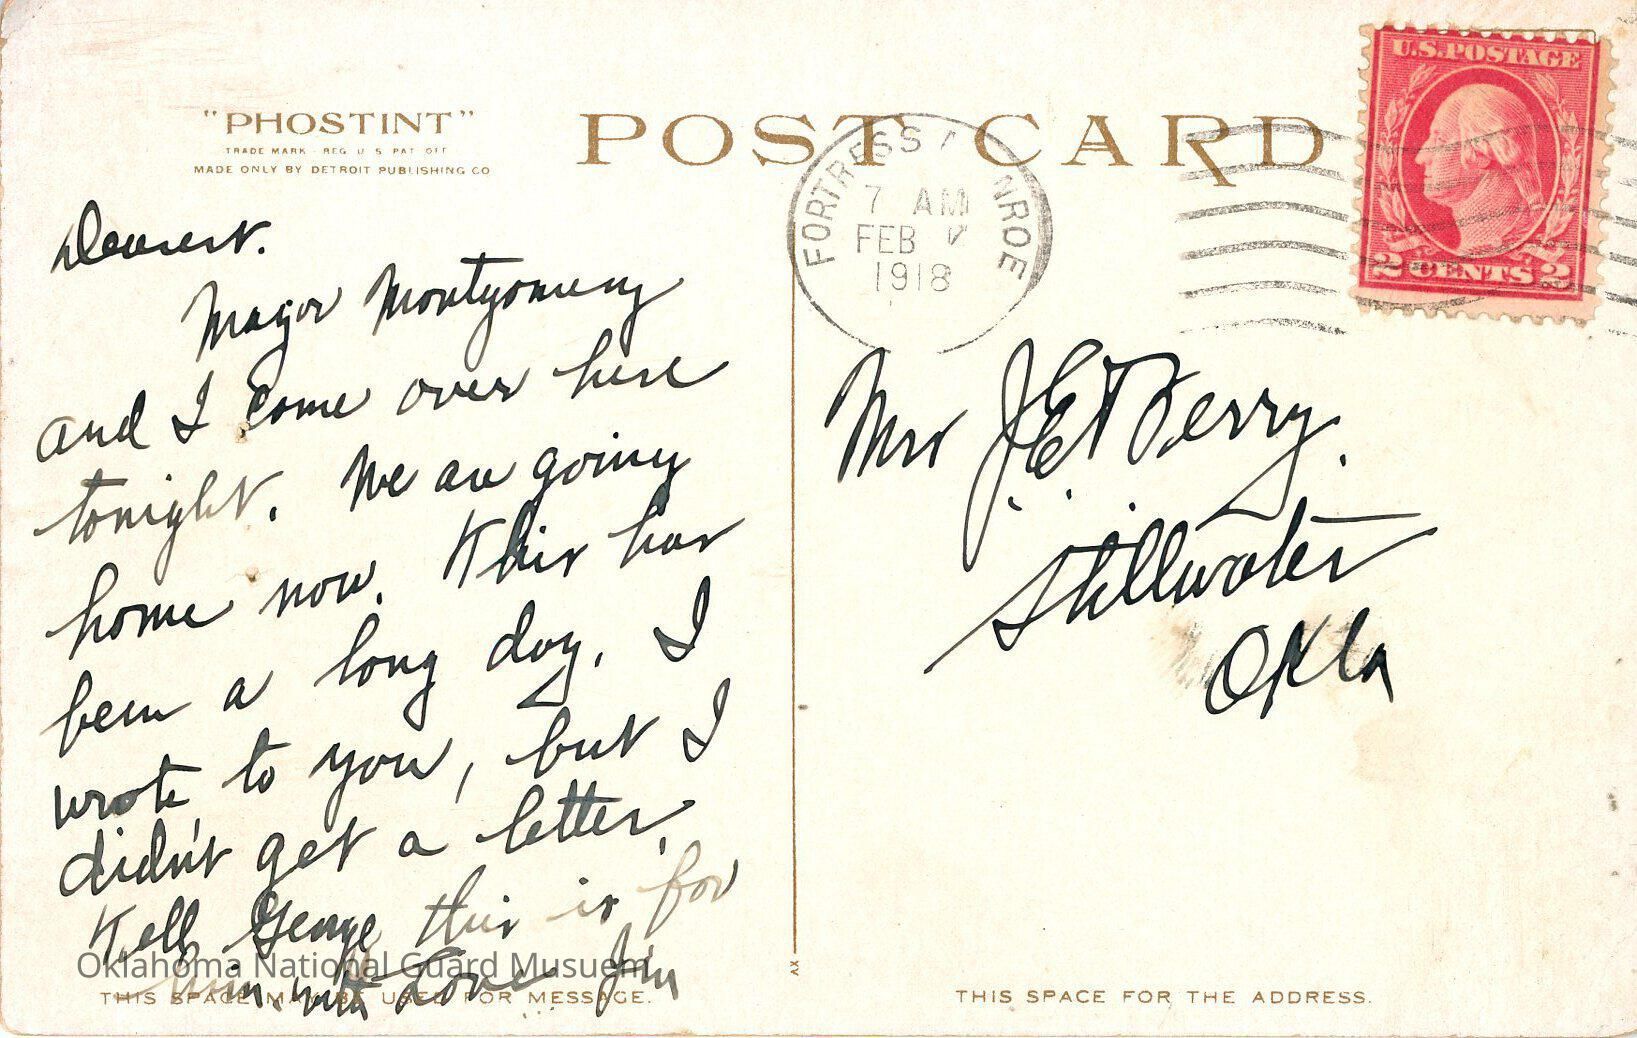 "PHOSTINT"
TRADE MARK - REG U S PAT OFF
MADE ONLY BY DETROIT PUBLISHING CO
POST CARD
FORTRESS NROE
7 AM
FEB
1918
U.S. POSTAGE
2 CENTS 2
Dearest.
Major Montgomery
and I come over here
tonight. We are going
home now. This has
been a long day. I
wrote to you, but I
didn't get a letter.
Tell George this is for
him with Love Jim
Mrs J.E. Berry.
Stillwater
Okla
Oklahoma National Guard Musuem
THIS SPACE MAY BE USED FOR MESSAGE.
THIS SPACE FOR THE ADDRESS.
XV